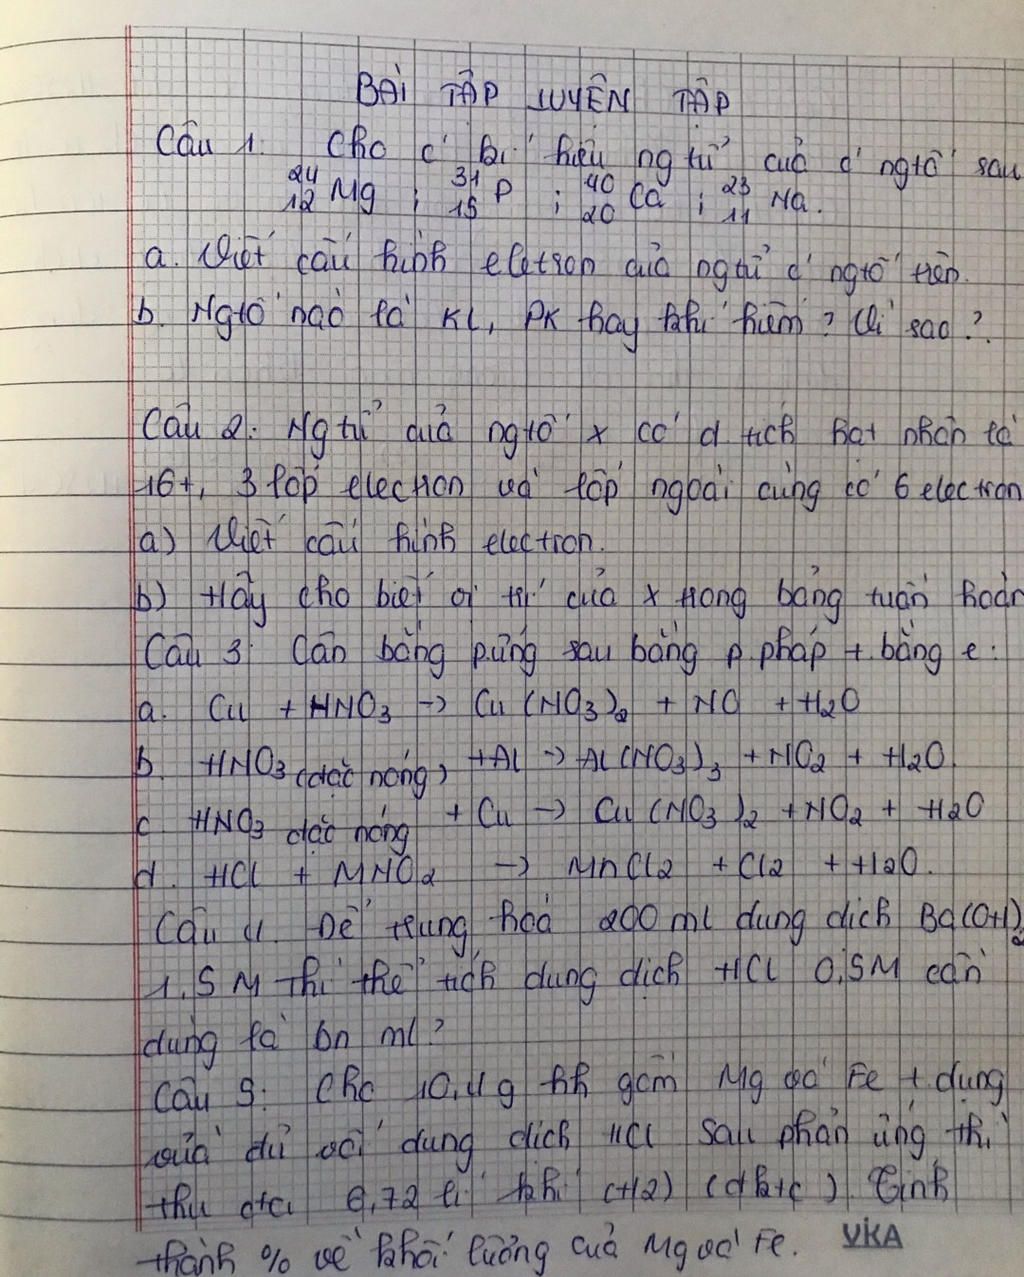 BÀI TẬP LUYỆN TẬP
Câu 1. Cho c' kí hiệu ngtử của c' ngtố sau
24 12 Mg ; 31 15 P ; 40 20 Ca ; 23 11 Na.
a. Viết cấu hình eletron của ngtử c' ngtố trên.
b. Ngtố nào là KL, PK hay khí hiếm? Vì sao?
Câu 2. Ngtử của ngtố x có đ tích hạt nhân là
16+, 3 lớp electron và lớp ngoài cùng có 6 electron
a) Viết cấu hình electron.
b) Hãy cho biết vị trí của x trong bảng tuần hoàn
Câu 3: Cân bằng p.ứng sau bằng p. pháp t. bằng e:
a. Cu + HNO3 -> Cu (NO3)2 + NO + H2O
b. HNO3 (đặc nóng) + Al -> Al(NO3)3 + NO2 + H2O.
c. HNO3 đặc nóng + Cu -> Cu (NO3)2 + NO2 + H2O
d. HCl + MNO2 -> MnCl2 + Cl2 + H2O.
Câu 4. Để trung hoà 200 ml dung dịch Ba(OH)2
1,5 M thì thể tích dung dịch HCl 0,5M cần
dùng là bn ml?
Câu 5: Cho 10,4g hh gồm Mg và Fe t. dụng
vừa đủ với dung dịch HCl sau phản ứng thì
thu đtcl 6,72 lí khí (H2) (đktc). Tính
thành % về khối lượng của Mg và Fe.
VIKA